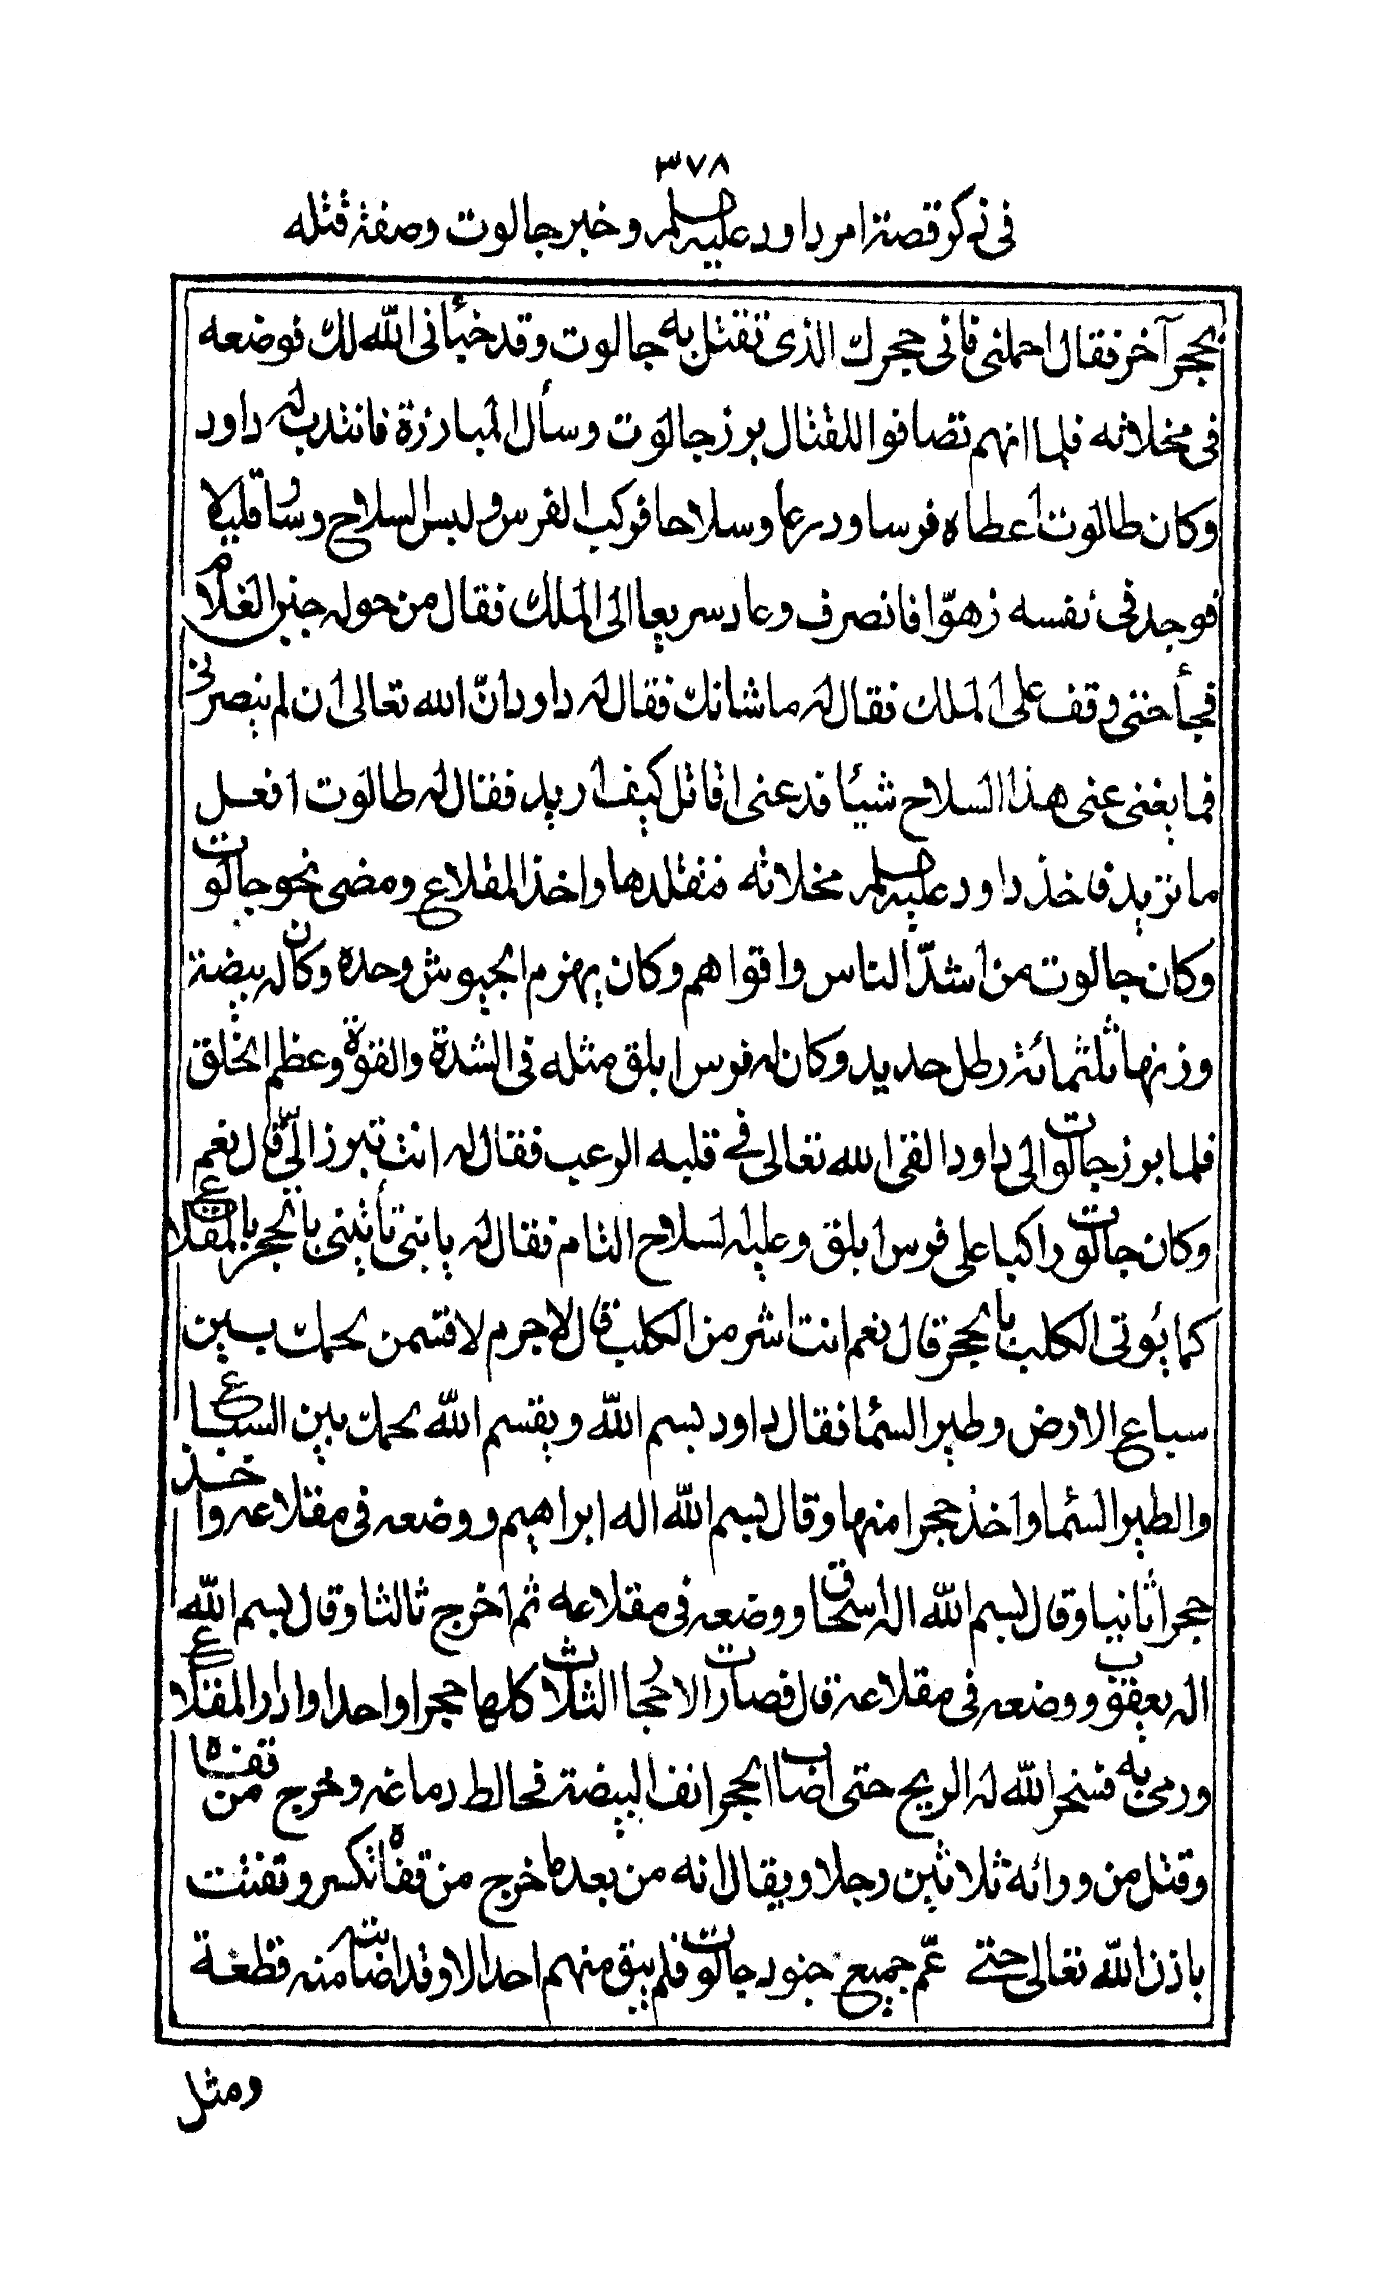 ٣٧٨
فى ذكر قصة امر داود عليه السلم وخبر جالوت وصفة قتله
بحجر آخر فقال احملنى فانى حجرك الذى تقتل به جالوت وقد خبأنى الله لك فوضعه
فى مخلاته فلما انهم تصافوا للقتال برز جالوت وسأل المبارزة فانتدب له داود
وكان طالوت أعطاه فرسا ودرعا وسلاحا فركب الفرس ولبس السلاح وسار قليلا
فوجد فى نفسه زهوّا فانصرف وعاد سريعا الى الملك فقال من حوله جبن الغلام
فجأ حتى وقف على الملك فقال له ما شانك فقال له داود انّ الله تعالى ان لم ينصرنى
فما يغنى عنى هذا السلاح شيئا فدعنى اقاتل كيف اريد فقال له طالوت افعل
ما تريد فاخذ داود عليه السلم مخلاته فتقلدها واخذ المقلاع ومضى نحو جالوت
وكان جالوت من اشدّ الناس واقواهم وكان يهزم الجيوش وحده وكان له بيضة
وزنها ثلثمائة رطل حديد وكان له فرس ابلق مثله فى الشدة والقوة وعظم الخلق
فلما برز جالوت الى داود القى الله تعالى فى قلبه الرعب فقال له انت تبرز الىّ قال نعم
وكان جالوت راكبا على فرس ابلق وعليه السلاح التام فقال له يا بنى تأتينى بالحجر بالمقلاع
كما يُوتى الكلب بالحجر قال نعم انت اشر من الكلب قال لا جرم لاقسمن لحمك بين
سباع الارض وطير السمأ فقال داود بسم الله ويقسم الله لحمك بين السباع
والطير السمأ واخذ حجرا منها وقال بسم الله اله ابراهيم ووضعه فى مقلاعه واخذ
حجرا ثانيا وقال بسم الله اله اسحاق ووضعه فى مقلاعه ثم اخرج ثالثا وقال بسم الله
اله يعقوب ووضعه فى مقلاعه قال فصارت الاحجار الثلاث كلها حجرا واحدا وادار المقلاع
ورمى به فسخر الله له الريح حتى اصاب الحجر انف البيضة فخالط دماغه وخرج من قفاه
وقتل من ورائه ثلاثين رجلا ويقال انه من بعد ما خرج من قفاه تكسر وتفتت
باذن الله تعالى حتى عمّ جميع جنود جالوت فلم يبق منهم احد الا وقد اصابته منه قطعة
ومثل